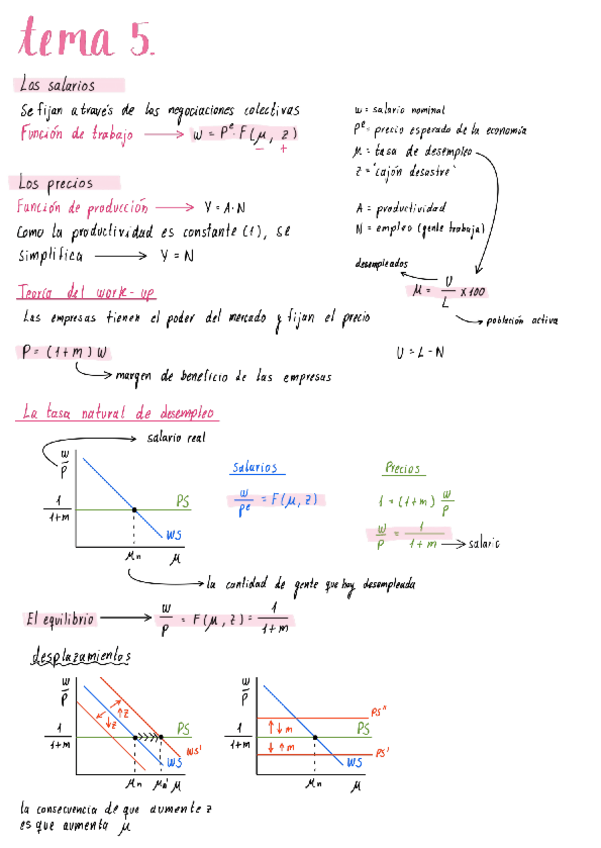 tema 5.
Los salarios
Se fijan a través de las negociaciones colectivas
Función de trabajo → w = Pᵉ · F(μ, z)
− +
w = salario nominal
Pᵉ = precio esperado de la economía
μ = tasa de desempleo
z = "cajón desastre"
Los precios
Función de producción → Y = A · N
Como la productividad es constante (1), se
simplifica → Y = N
A = productividad
N = empleo (gente trabaja)
desempleados
μ = U/L x 100
población activa
Teoría del work-up
Las empresas tienen el poder del mercado y fijan el precio
P = (1+m) w
margen de beneficio de las empresas
U = L - N
La tasa natural de desempleo
salario real
w/P
1/1+m
PS
WS
μn μ
Salarios
w/Pᵉ = F(μ, z)
Precios
1 = (1+m) w/P
w/P = 1/1+m → salario
la cantidad de gente que hay desempleada
El equilibrio → w/P = F(μ, z) = 1/1+m
desplazamientos
w/P
↑z
↓z
1/1+m
PS
WS'
WS
μn μn' μ
w/P
PS''
↑↓m
1/1+m
PS
↓↑m
PS'
WS
μn μ
la consecuencia de que aumente z
es que aumenta μ